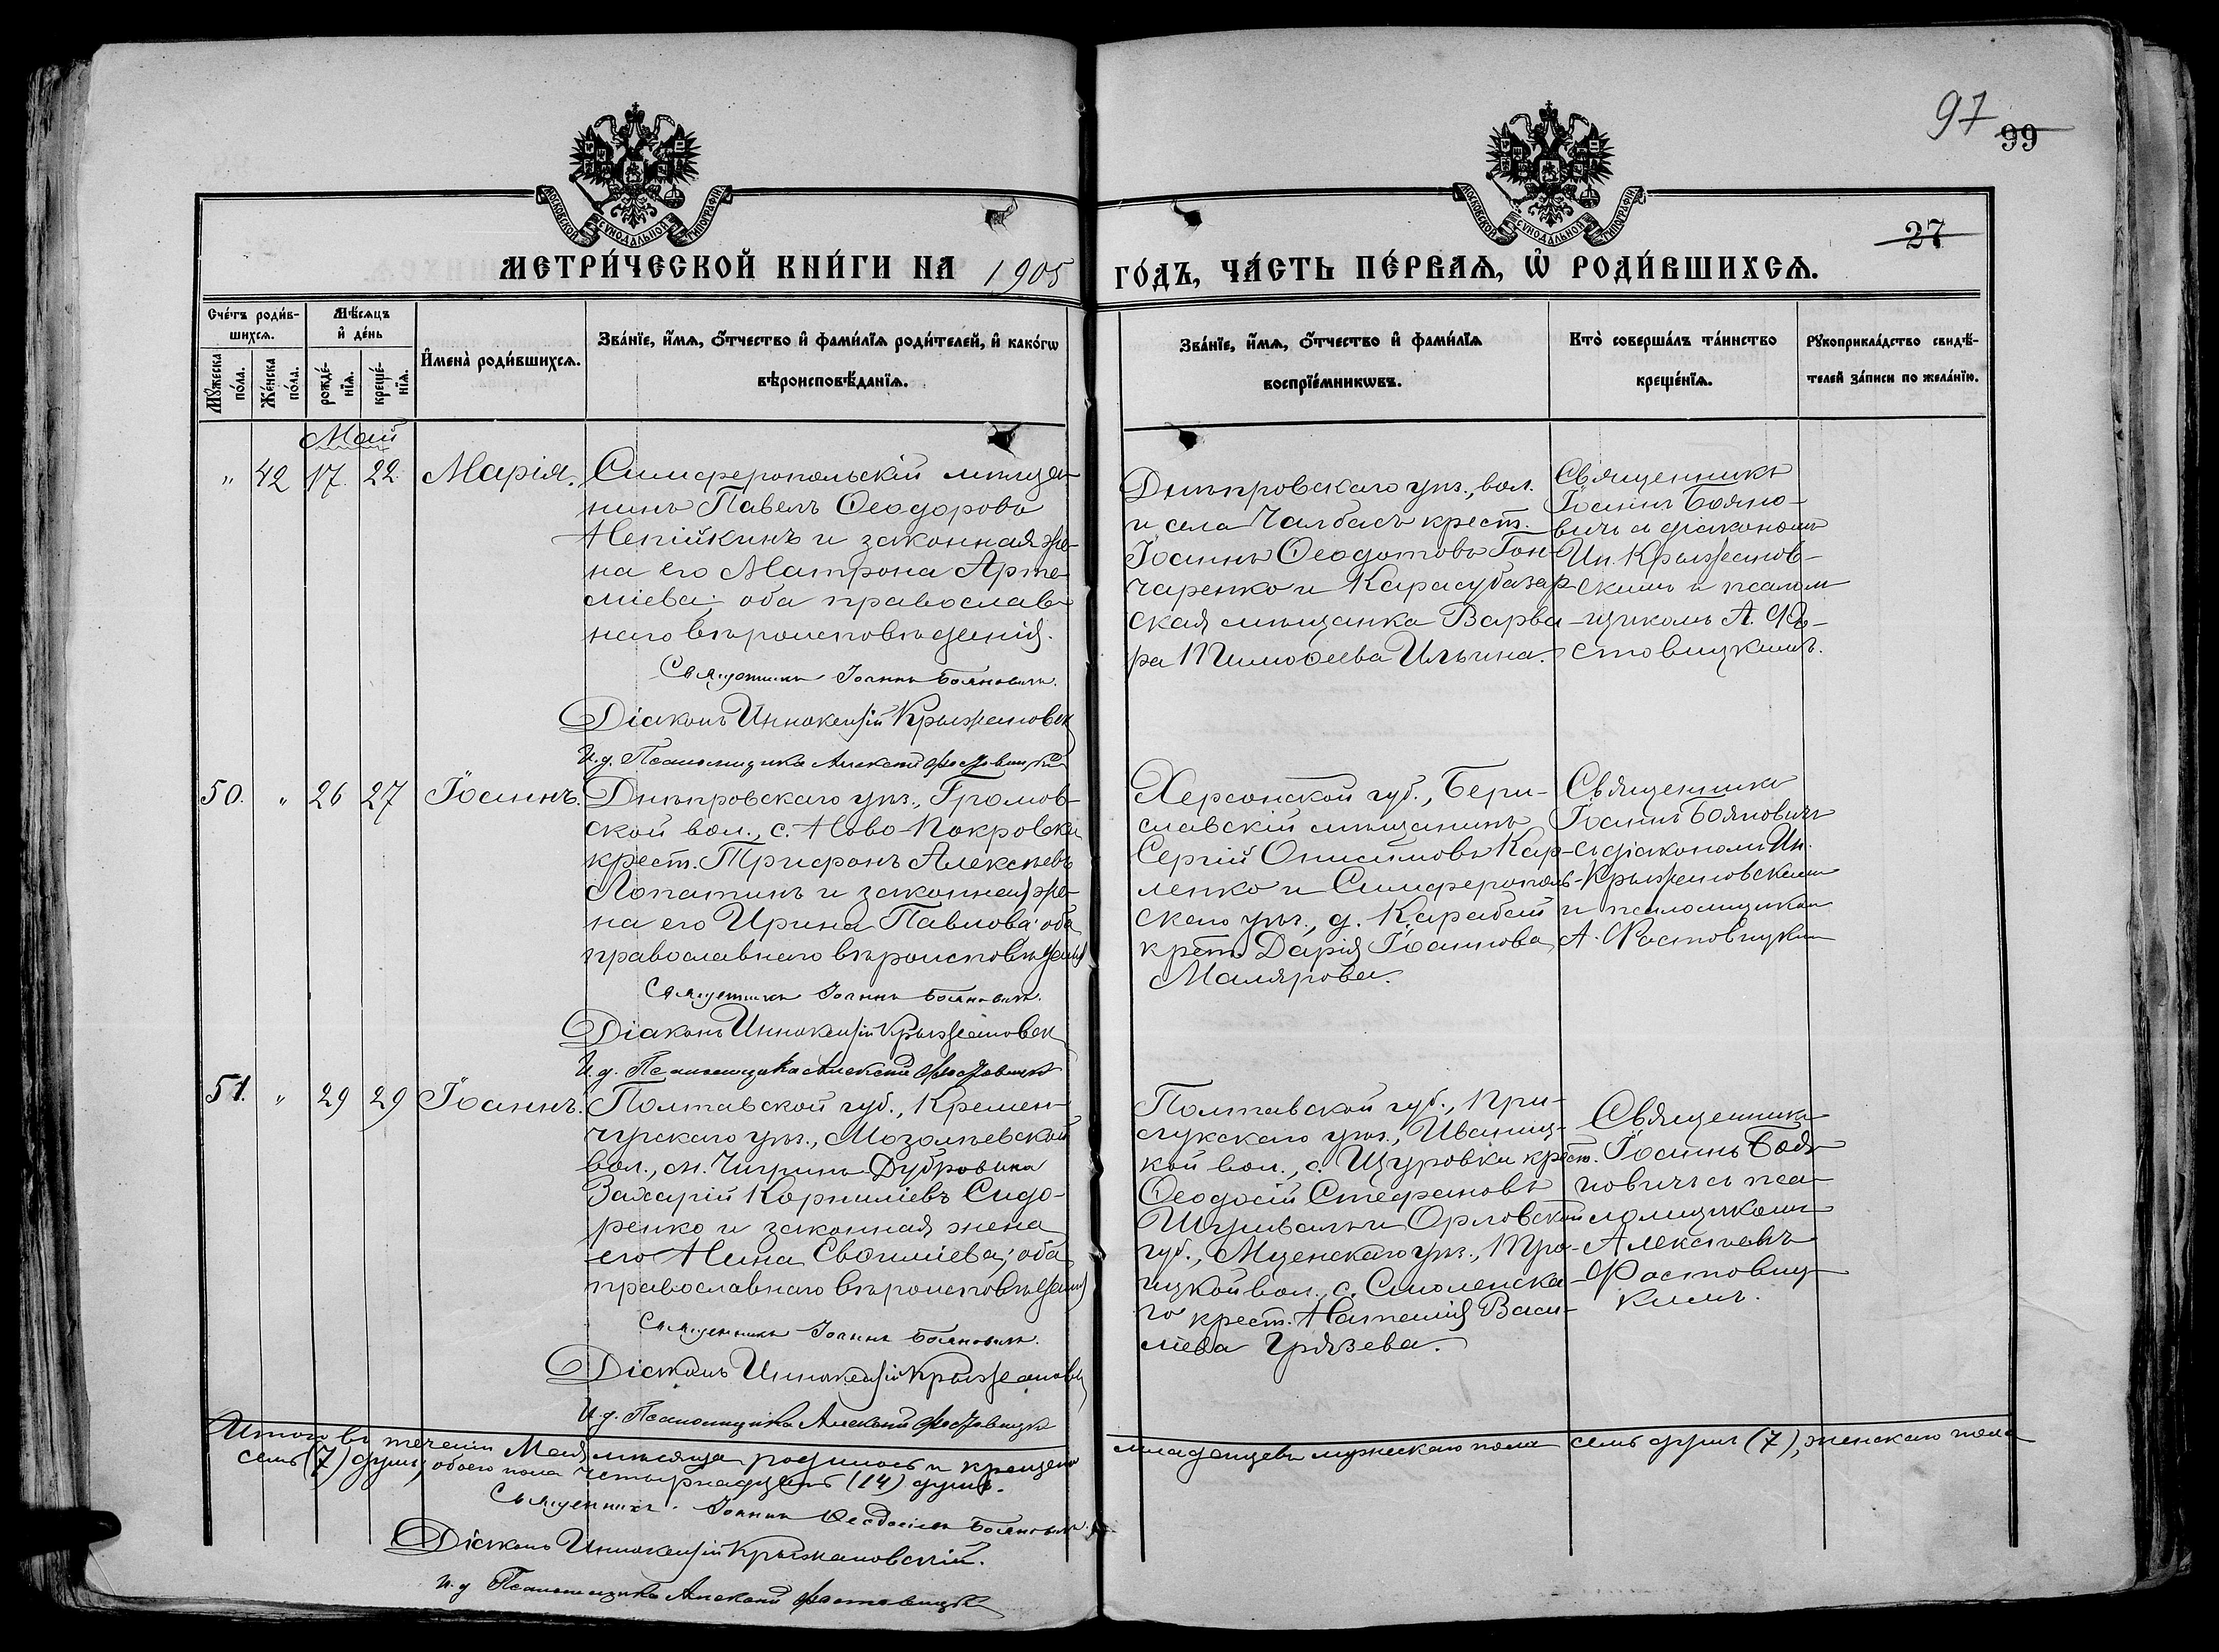 97
99
МОСКОВСКОЙ СѴНОДАЛЬНОЙ ТИПОГРАФІИ
МОСКОВСКОЙ СѴНОДАЛЬНОЙ ТИПОГРАФІИ
27
МЕТРИ́ЧЕСКОЙ КНИ́ГИ НА 1905
ГО́ДЪ, ЧА́СТЬ ПЕ́РВАѦ, Ѡ҆ РОДИ́ВШИХСѦ.
Сче́тъ роди́в-
шихсѧ.
Мꙋ́жеска
по́ла.
Же́нска
по́ла.
Мѣ́сѧцъ
и҆ де́нь
рожде́-
нїѧ.
креще́-
нїѧ.
И҆мена̀ роди́вшихсѧ.
Зва́нїе, и҆́мѧ, ѻ҆́тчество и҆ фами́лїѧ роди́телей, и҆ како́гѡ
вѣроисповѣ́данїѧ.
Зва́нїе, и҆́мѧ, ѻ҆́тчество и҆ фами́лїѧ
воспрїе́мникѡвъ.
Кто̀ соверша́лъ та́инство
креще́нїѧ.
Рꙋкоприкла́дство свидѣ́-
телей за́писи по жела́нїю.
Май
" 42 17. 22. Марія.
Симферопольскій мѣща-
нинъ Павелъ Ѳеодоровъ
и законная же-
на его Матрона Арте-
міева; оба православ-
наго вѣроисповѣданія.
Священникъ Іоаннъ Бояновичъ.
Діаконъ Иннокентій Крыжановск
И. д. Псаломщика Алексѣй Фастовицкій
Днѣпровскаго уѣз., вол.
и села Чалбасъ крест.
Іоаннъ Ѳеодотовъ Гон-
чаренко и Карасубазар-
ская мѣщанка Варва-
ра Тимоѳеева Ильина.
Священникъ
Іоаннъ Бояно-
вичъ съ діакономъ
Ин. Крыжанов-
скимъ и псалом-
щикомъ А. Фа-
стовицкимъ.
50. " 26 27 Іоаннъ.
Днѣпровскаго уѣз., Громов-
ской вол., с. Ново-Покровки
крест. Трифонъ Алексѣевъ
Лопатинъ и законная же-
на его Ирина Павлова; оба
православнаго вѣроисповѣданія
Священникъ Іоаннъ Бояновичъ.
Діаконъ Иннокентій Крыжановск
И. д. Псаломщика Алексѣй Фастовицкій
Херсонской губ., Бери-
славскій мѣщанинъ
Сергій Онисимовъ Кар-
ленко и Симферополь-
скаго уѣз., д. Карабай
крест. Дарія Іоаннова
Малярова.
Священникъ
Іоаннъ Бояновичъ
съ діакономъ Ин.
Крыжановскимъ
и псаломщикомъ
А. Фастовицкимъ
51. " 29 29 Іоаннъ.
Полтавской губ., Кремен-
чугскаго уѣз., Мозолѣевской
вол., м. Чигринъ Дубровина
Захарій Корниліевъ Сидо-
ренко и законная жена
его Нина Евѳиміева; оба
православнаго вѣроисповѣданія
Священникъ Іоаннъ Бояновичъ.
Діаконъ Иннокентій Крыжановск
И. д. Псаломщика Алексѣй Фастовицкій
Полтавской губ., При-
лукскаго уѣз., Иваниц-
кой вол., с. Щуровки крест.
Ѳеодосій Стефановъ
и Орловской
губ., Мценскаго уѣз., Тро-
ицкой вол., с. Смоленска-
го крест. Наталія Васи-
ліева Грязева.
Священникъ
Іоаннъ Боя-
новичъ съ пса-
ломщикомъ
Алексѣемъ
Фастовиц-
кимъ.
Итого въ теченіи Мая мѣсяца родилось и крещено младенцевъ мужескаго пола семь душъ (7), женскаго пола
семь (7) душъ, обоего пола четырнадцать (14) душъ.
Священникъ Іоаннъ Ѳеодосіевъ Бояновичъ.
Діаконъ Иннокентій Крыжановскій.
И. д. Псаломщика Алексѣй Фастовицкій